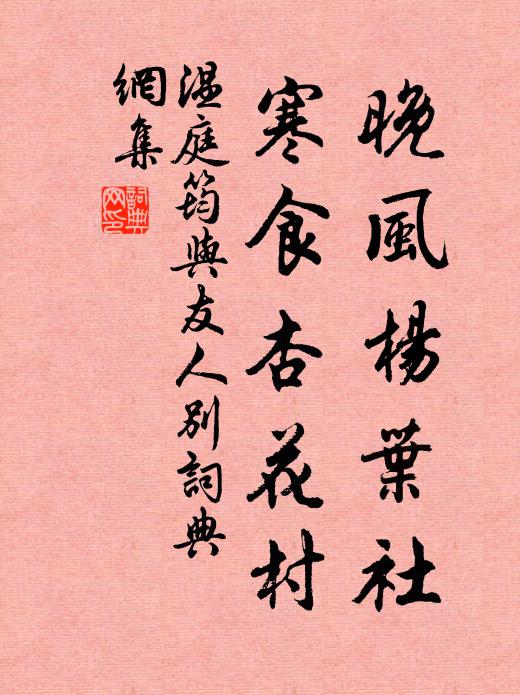 晚風楊葉社
寒食杏花村
温庭筠與友人別詞典
網集
詞典
网印